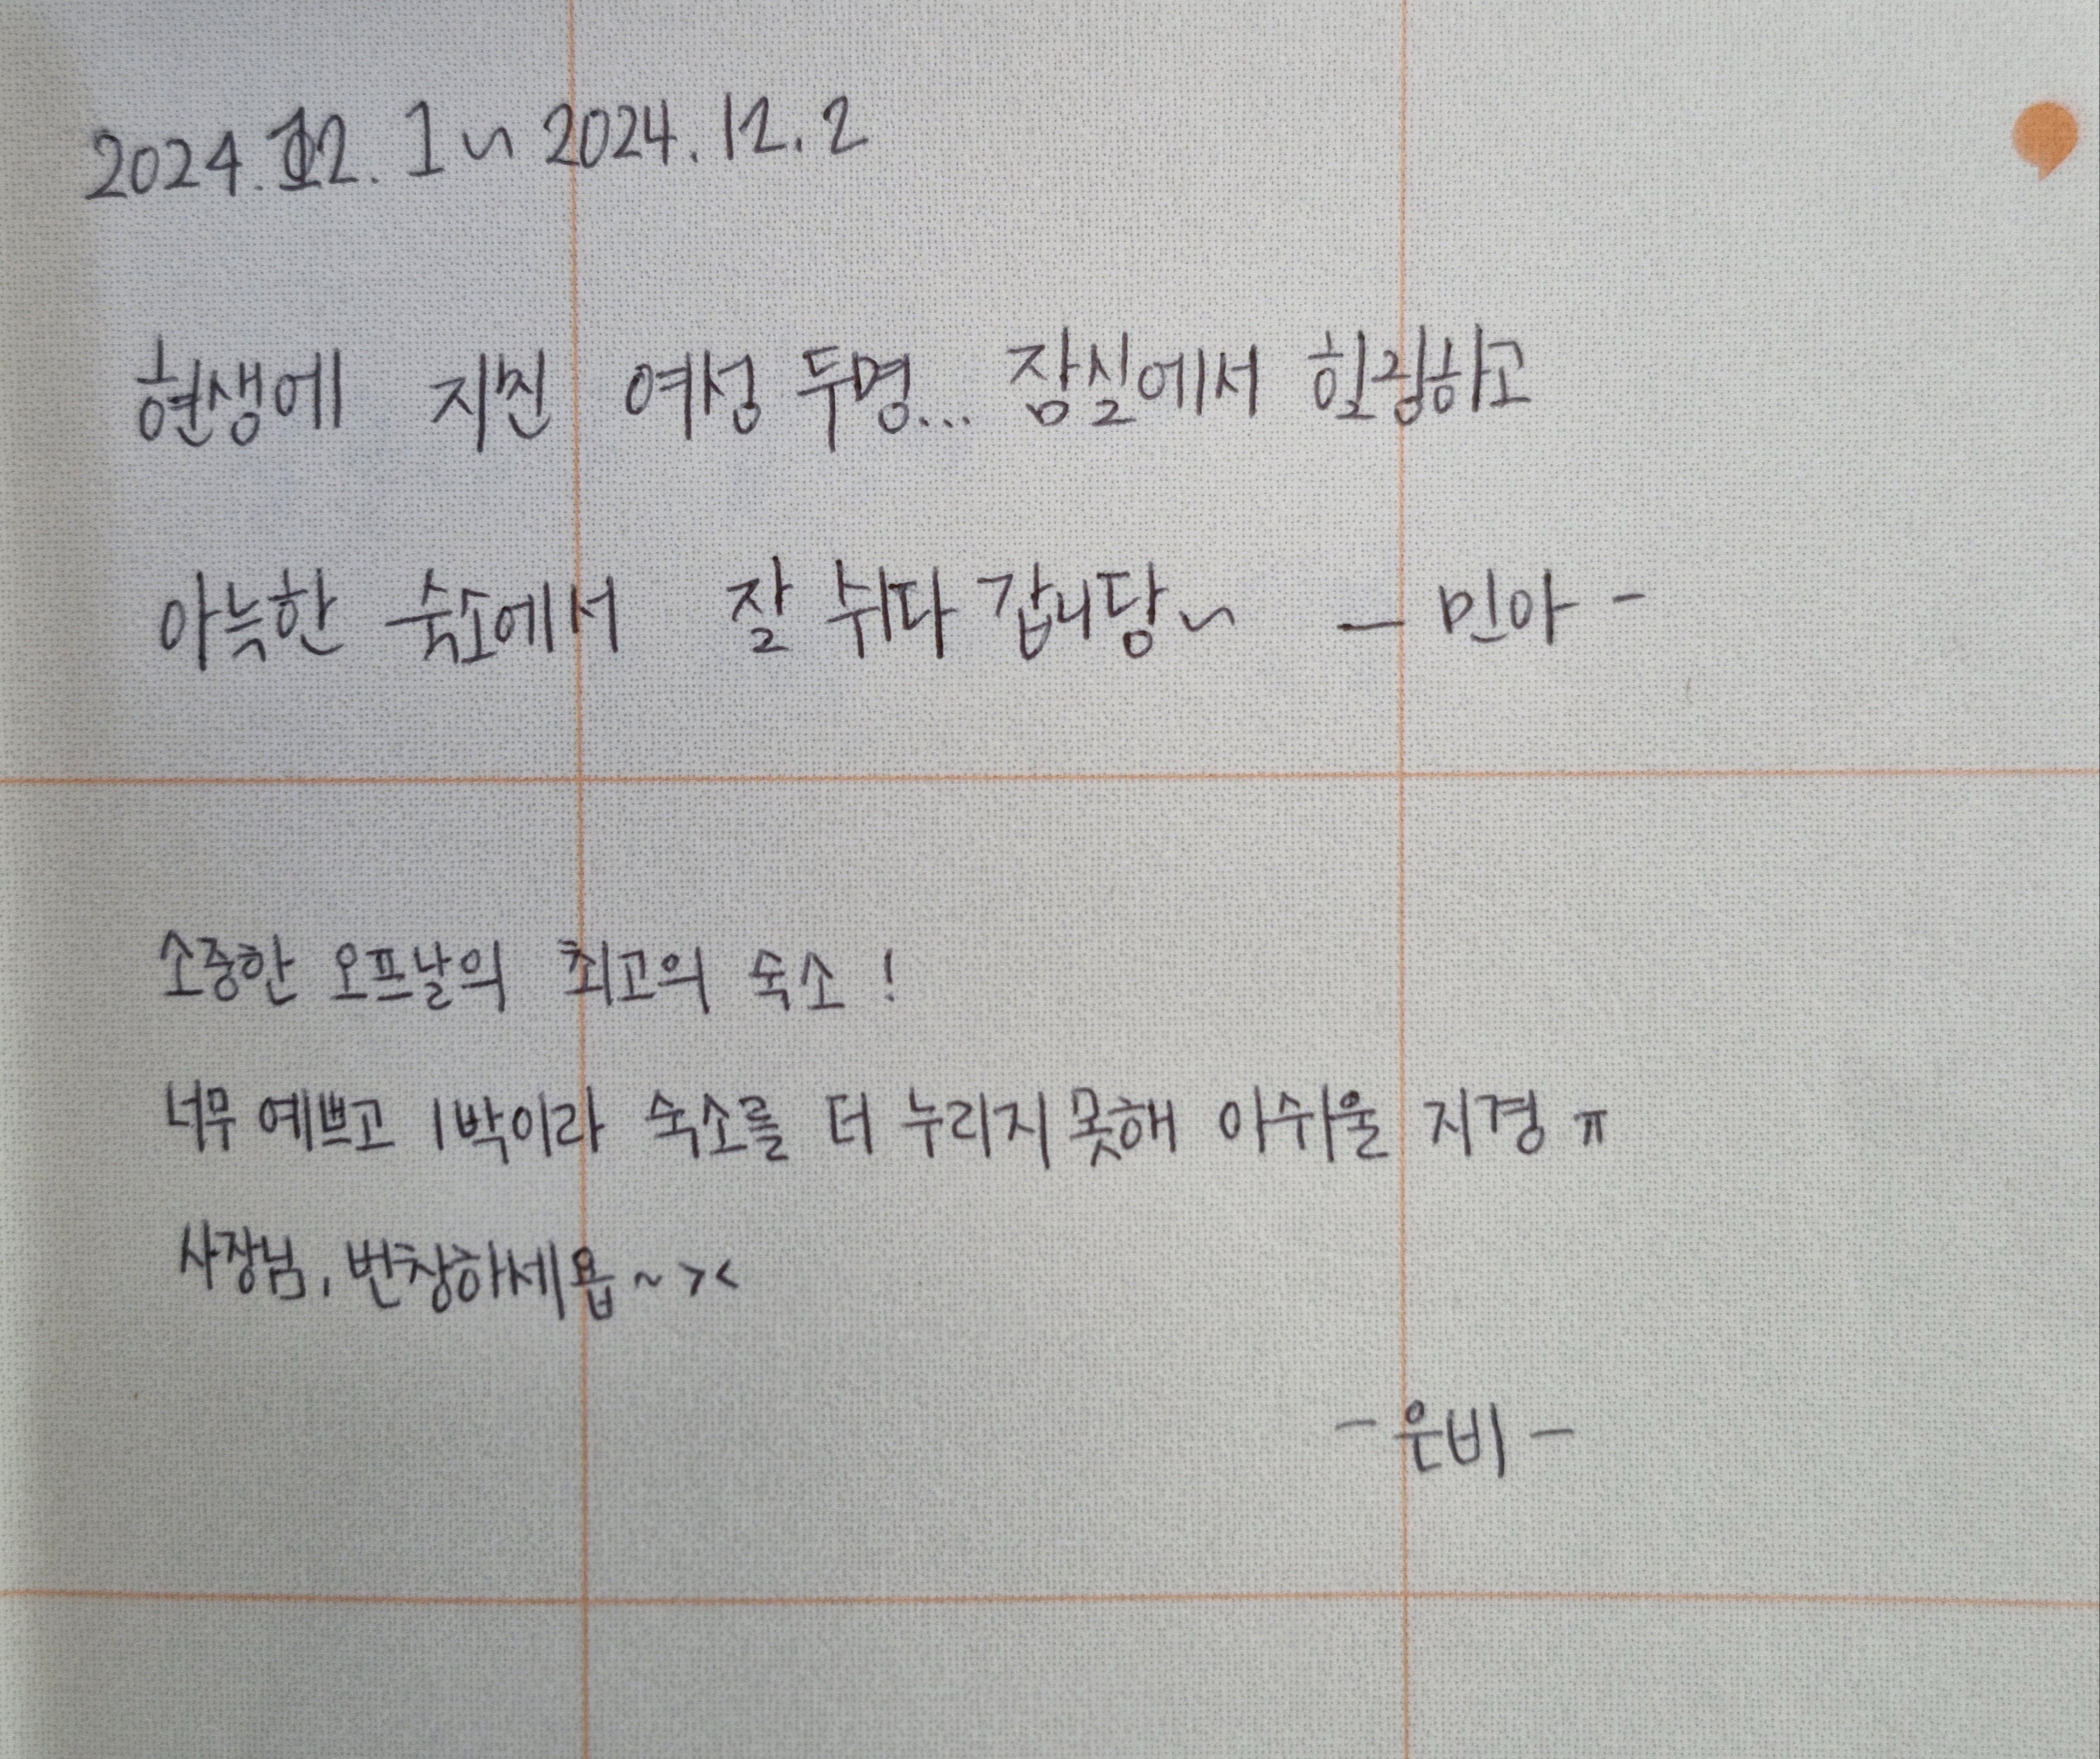 2024.12. 1 ~ 2024.12.2
현생에 지친 여성 두명... 잠실에서 힐링하고
아늑한 숙소에서 잘 쉬다 갑니당~ - 민아 -
소중한 오프날의 최고의 숙소 !
너무 예쁘고 1박이라 숙소를 더 누리지 못해 아쉬울 지경 ㅠ
사장님, 번창하세욥~ ><
- 은비 -